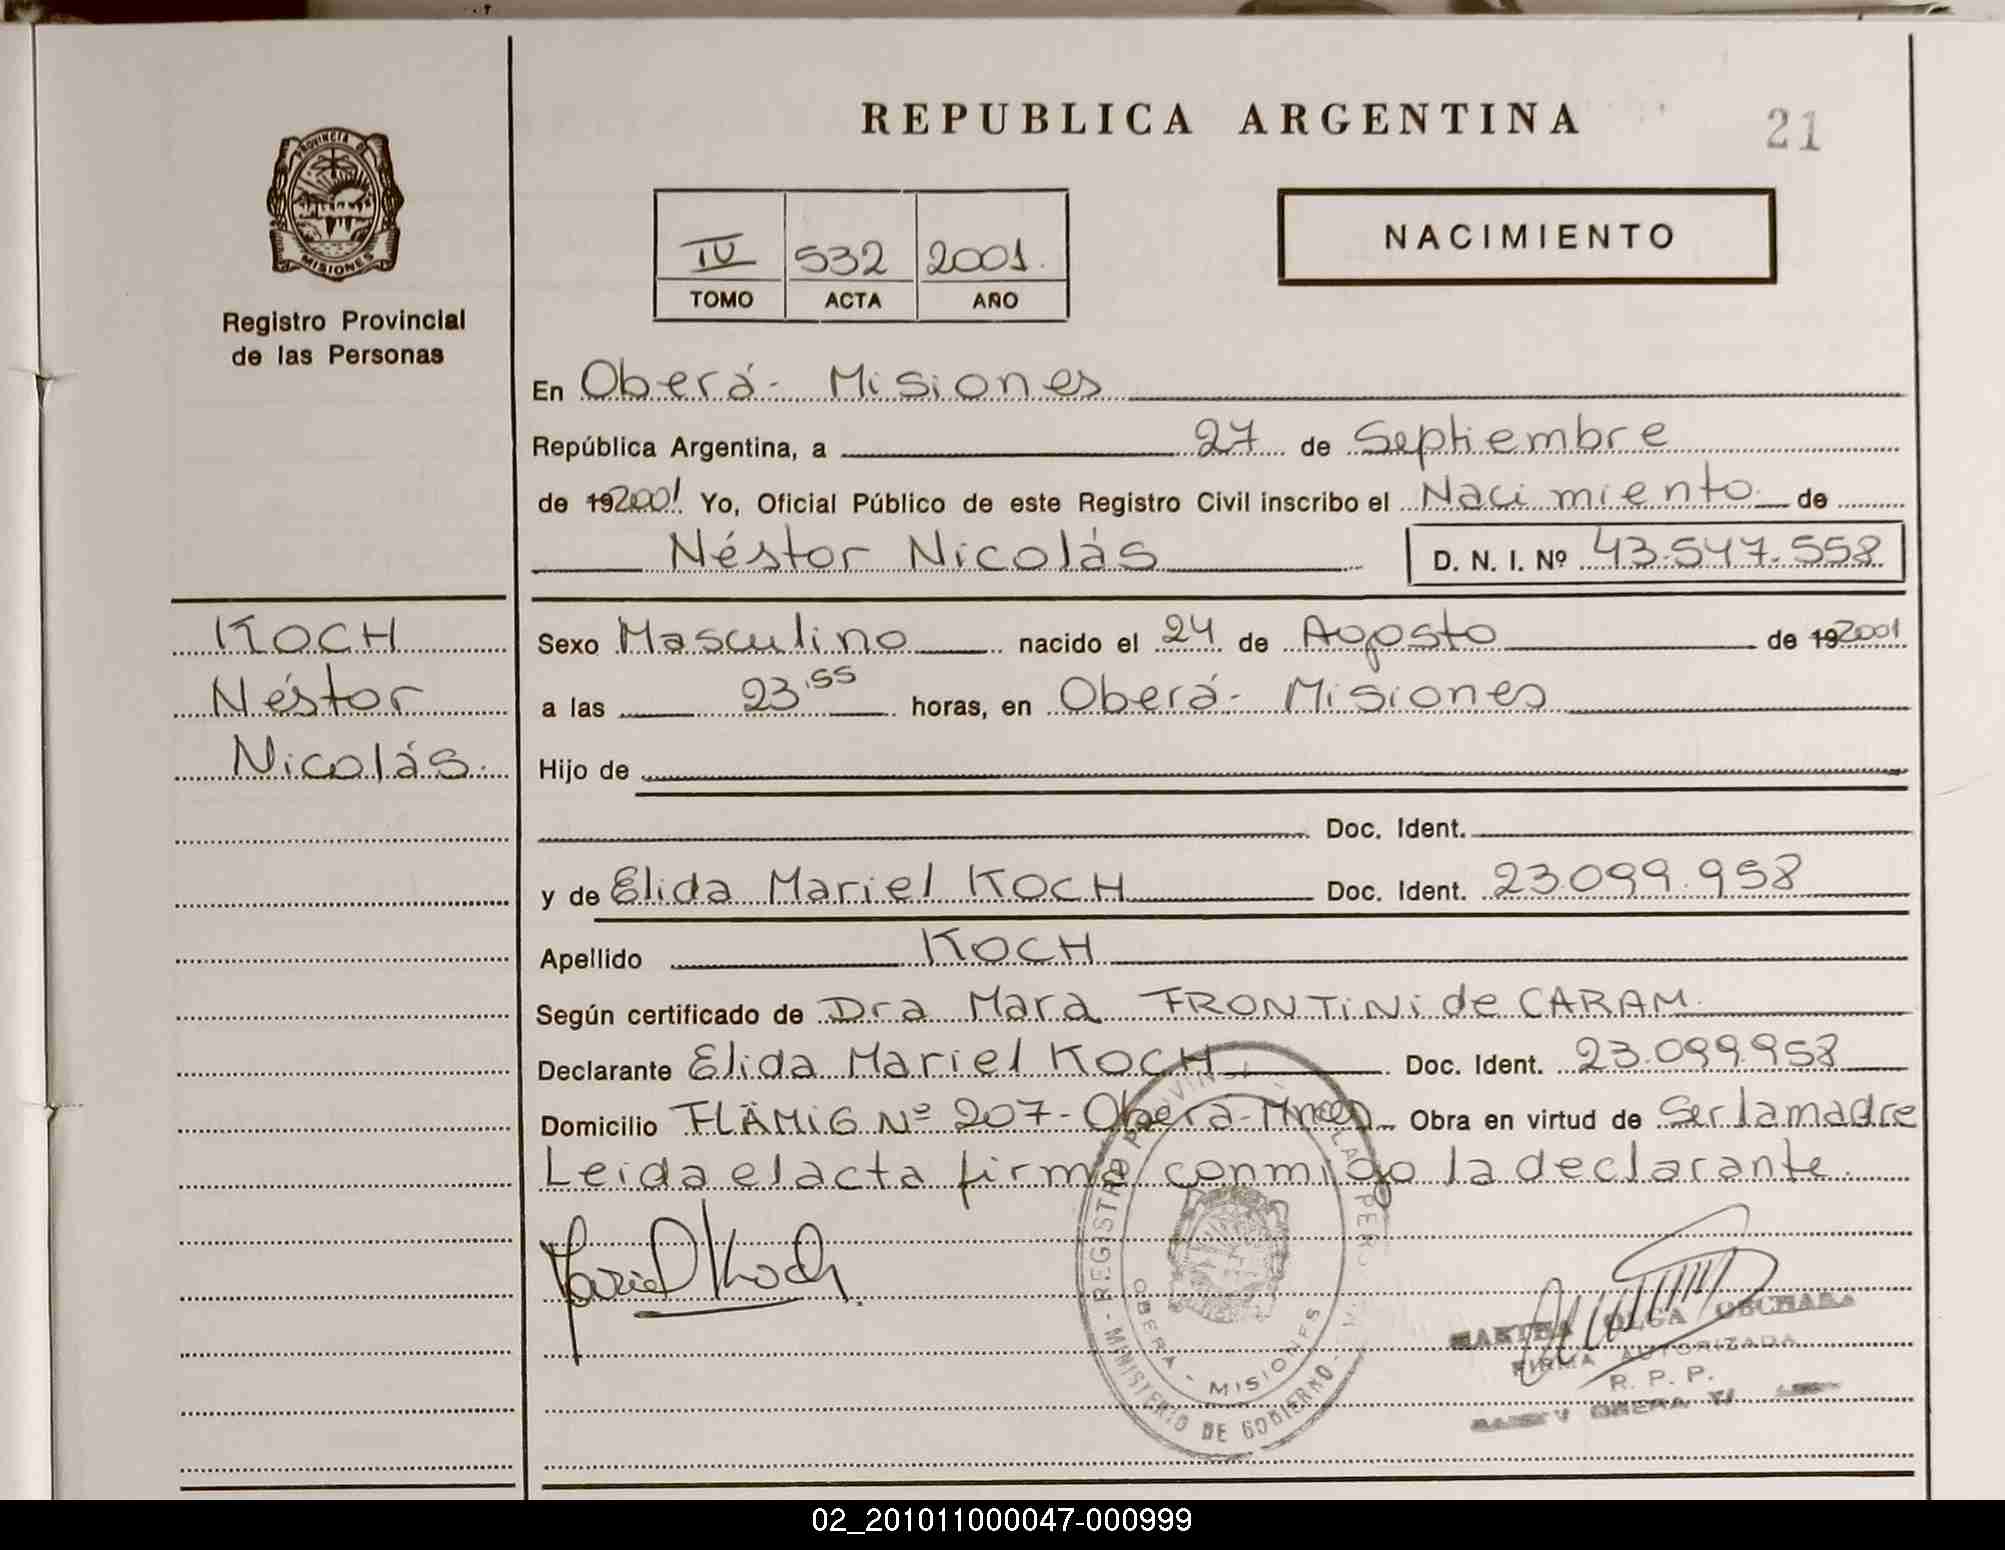 REPUBLICA ARGENTINA
21
PROVINCIA DE
MISIONES
Registro Provincial
de las Personas
IV 532 2001.
TOMO ACTA AÑO
NACIMIENTO
En Oberá- Misiones
República Argentina, a 27 de Septiembre
de 19 2001 Yo, Oficial Público de este Registro Civil inscribo el Nacimiento de
Néstor Nicolás D. N. I. Nº 43.547.558
KOCH
Néstor
Nicolás.
Sexo Masculino nacido el 24 de Agosto de 19 2001
a las 23,55 horas, en Oberá- Misiones
Hijo de
Doc. Ident.
y de Elida Mariel KOCH Doc. Ident. 23.099.958
Apellido KOCH
Según certificado de Dra Mara FRONTiNi de CARAM.
Declarante Elida Mariel KOCH Doc. Ident. 23.099.958
Domicilio FLÄMiG Nº 207- Oberá- Obra en virtud de Ser la madre
Leida el acta firma conmigo la declarante.
Mariel Koch
REGISTRO PROVINCI LA PER
MINISTERIO DE GOBIERNO
OBERA - MISIONES
MARTHA OLGA
FIRMA AUTORIZADA
R. P. P.
OBERA
02_201011000047-000999